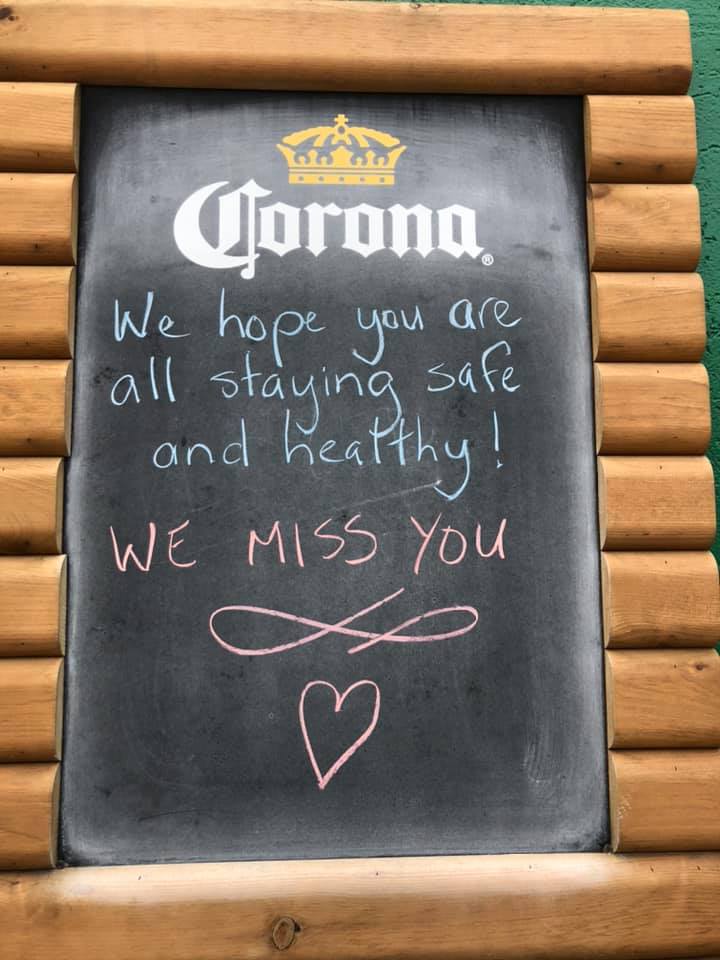 Corona®
We hope you are
all staying safe
and healthy!
WE MISS YOU